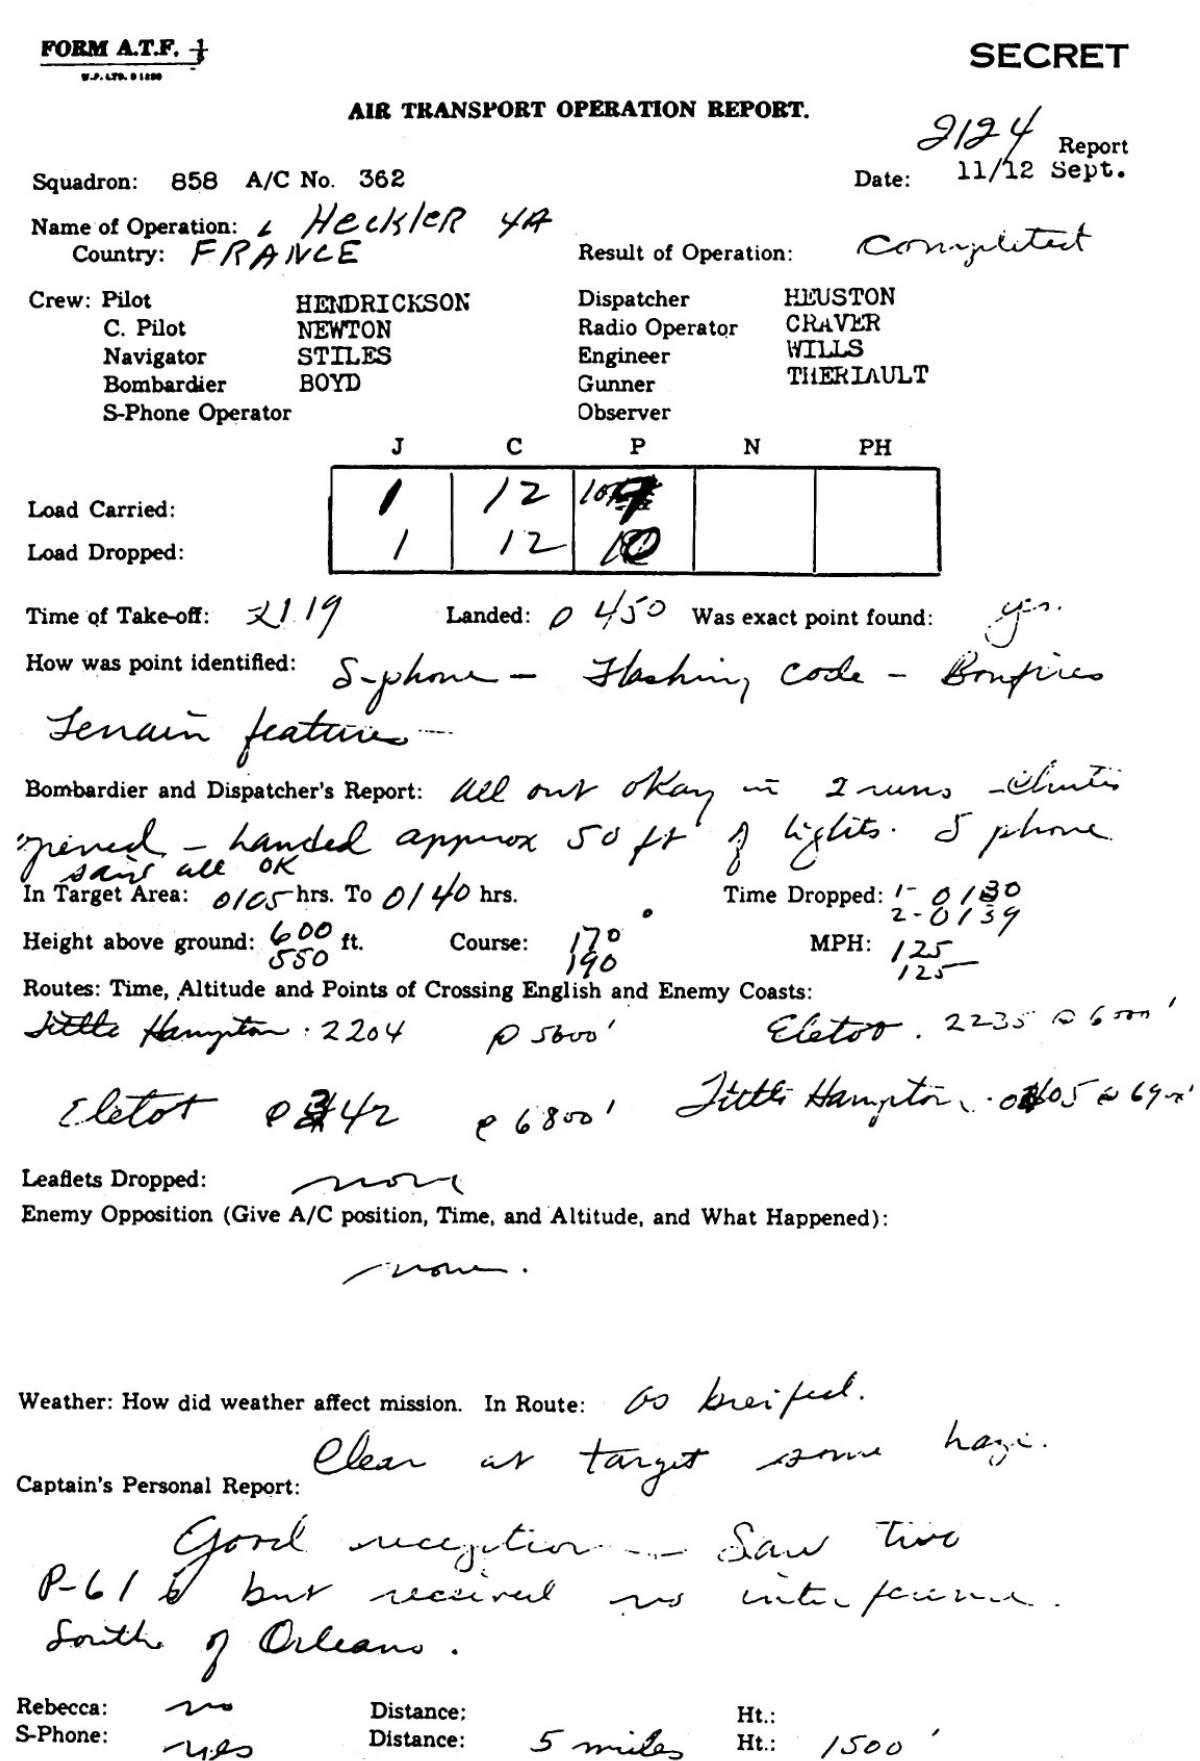 FORM A.T.F.
W.P. LTD.
SECRET
AIR TRANSPORT OPERATION REPORT.
2124 Report
Squadron: 858 A/C No. 362 Date: 11/12 Sept.
Name of Operation: HecklER 4A
Country: FRANCE Result of Operation: Completed
Crew: Pilot HENDRICKSON Dispatcher HEUSTON
C. Pilot NEWTON Radio Operator CRAVER
Navigator STILES Engineer WILLS
Bombardier BOYD Gunner THERIAULT
S-Phone Operator Observer
J C P N PH
Load Carried: 1 12
Load Dropped: 1 12
Time of Take-off: 2119 Landed: 0450 Was exact point found: yes.
How was point identified: S-phone - Flashing code - Bonfires
Terrain features
Bombardier and Dispatcher's Report: All out okay in 2 runs - Chutes
opened - landed approx 50 ft of lights. S phone
said all OK
In Target Area: 0105 hrs. To 0140 hrs. Time Dropped: 1- 0130
2-0139
Height above ground: 600 ft. Course: 170° MPH: 125
550 190 125
Routes: Time, Altitude and Points of Crossing English and Enemy Coasts:
Little Hampton . 2204 @ 5600' Eletot . 2235 @ 6000'
Eletot 0342 @ 6800' Little Hampton . 0405 @ 6900'
Leaflets Dropped: none
Enemy Opposition (Give A/C position, Time, and Altitude, and What Happened):
none.
Weather: How did weather affect mission. In Route: as breifed.
Clear at target some haze.
Captain's Personal Report:
Good reception — Saw two
P-61's but received no interference.
South of Orleans.
Rebecca: no Distance: Ht.:
S-Phone: yes Distance: 5 miles Ht.: 1500'